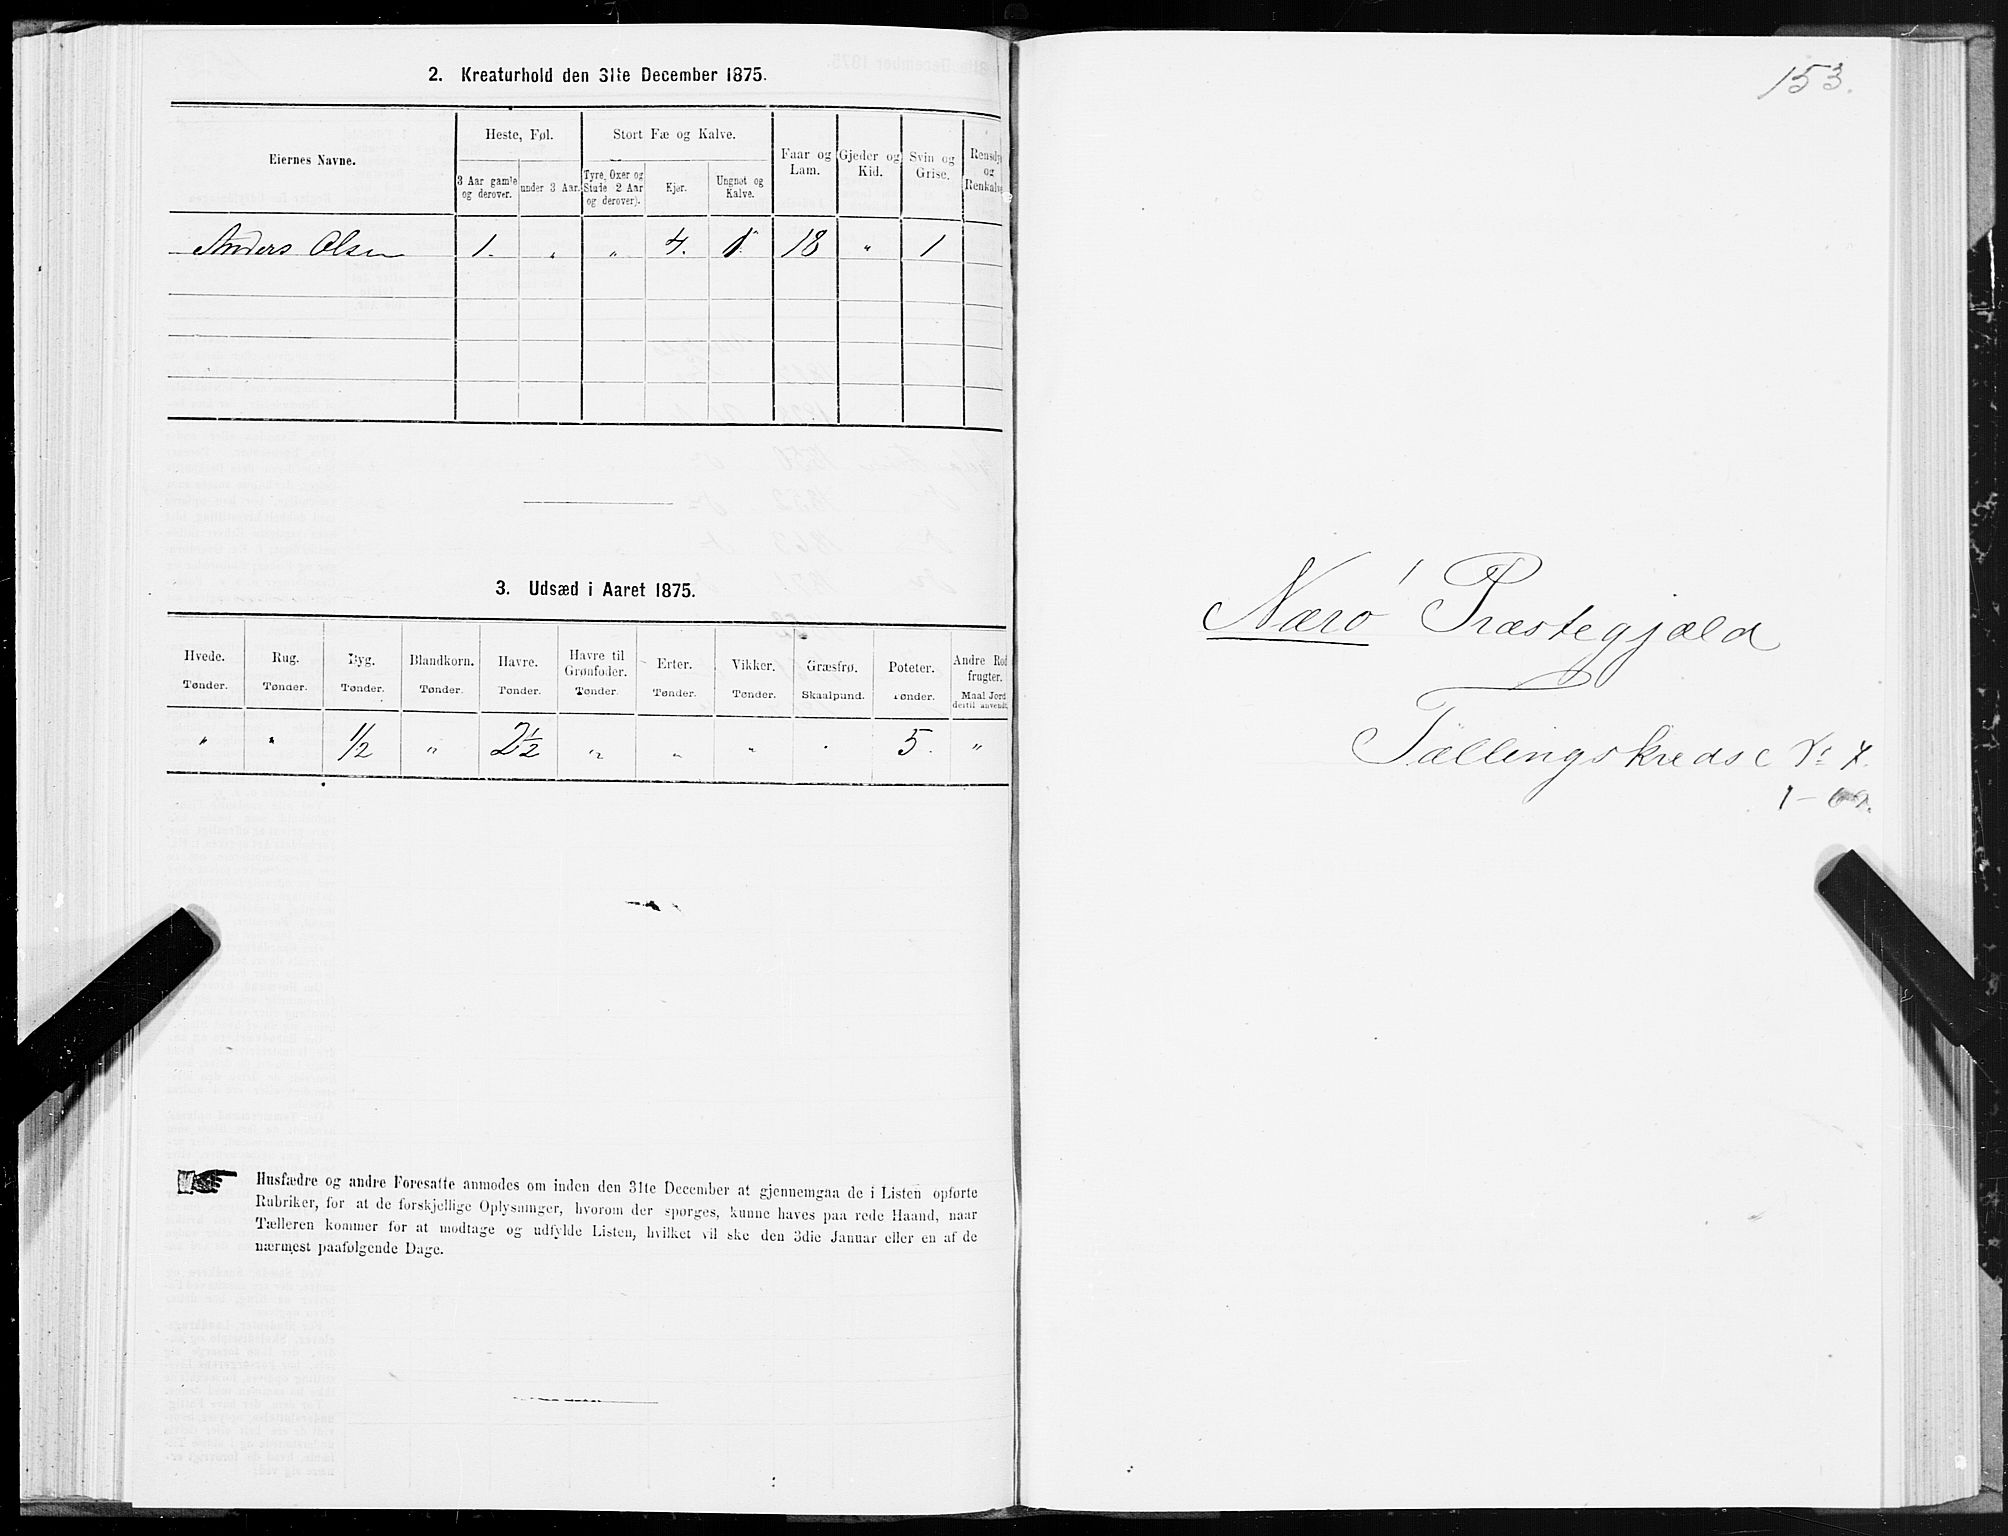 2. Kreaturhold den 31te December 1875.
Eiernes Navne.
Heste, Føl.
Stort Fæ og Kalve.
Faar og Lam.
Gjeder og Kid.
Svin og Grise.
Rensdyr og Renkalve
3 Aar gamle og derover.
under 3 Aar.
Tyre, Oxer og Stude 2 Aar og derover).
Kjør.
Ungnøt og Kalve.
Anders Olsen 1. " " 4. 1. 18 " 1
3. Udsæd i Aaret 1875.
Hvede. Rug. Byg. Blandkorn. Havre. Havre til Grønfoder. Erter. Vikker. Græsfrø. Poteter. Andre Rodfrugter.
Tønder. Tønder. Tønder. Tønder. Tønder. Tønder. Tønder. Tønder. Skaalpund. Tønder. Maal Jord dertil anvendt
" " 1/2 " 2 1/2 " " " " 5. "
Husfædre og andre Foresatte anmodes om inden den 31te December at gjennemgaa de i Listen opførte
Rubriker, for at de forskjellige Oplysninger, hvorom der spørges, kunne haves paa rede Haand, naar
Tælleren kommer for at modtage og udfylde Listen, hvilket vil ske den 3die Januar eller en af de
nærmest paafølgende Dage.
153.
Nærø Præstegjæld
Tællingskreds